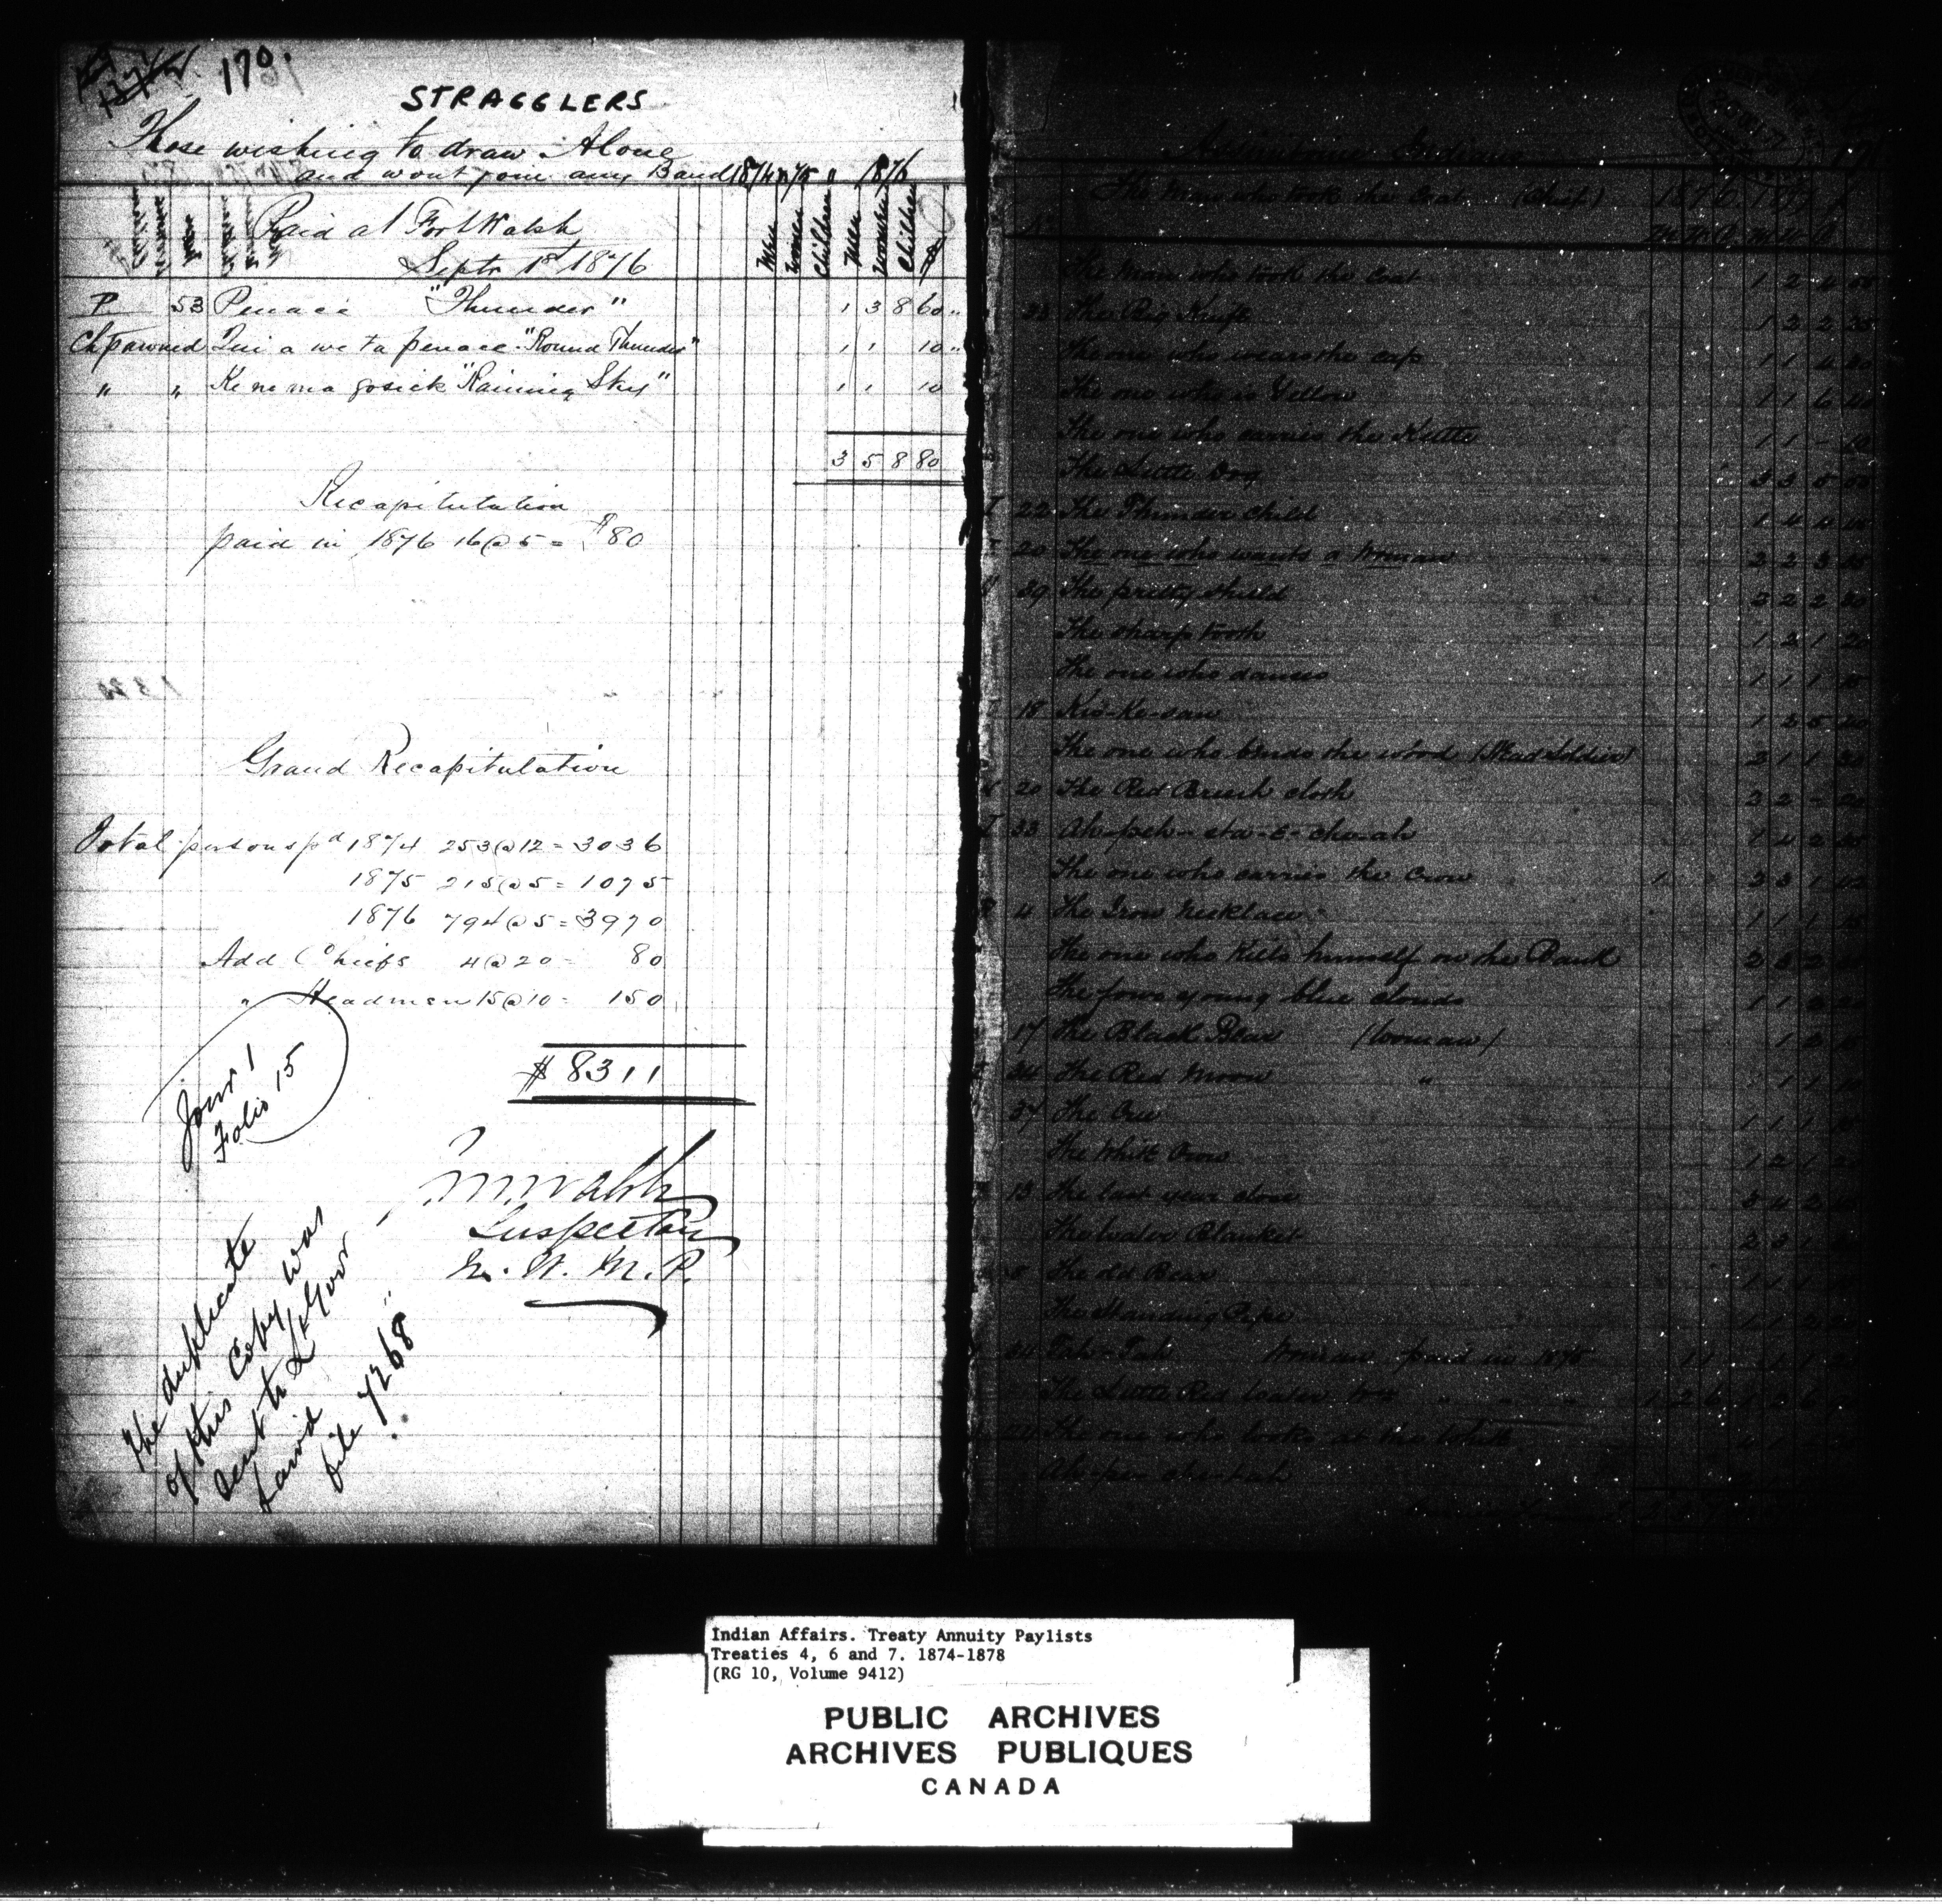 170.
STRAGGLERS
Those wishing to draw Alone
and wont join any Band 1874 & 75 " 1876
Paid at Fort Walsh
Septr 1st 1876
Men Women Children Men Women Children $
P 53 Penace "Thunder" 1 3 8 60 "
Chpawned Qui a we ta penace "Round Thunder" 1 1 10 "
" " Ke ne ma gosick "Raining Sky" 1 1 10
3 5 8 80
Recapitulation
paid in 1876 16 @ 5 = $80
Grand Recapitulation
Total persons pd 1874 253 @ 12 = 3036
1875 215 @ 5 = 1075
1876 794 @ 5 = 3970
Add Chiefs 4 @ 20 = 80
" Headmen 15 @ 10 = 150
$ 8311
Jour 1
Folio 15
Walsh
Inspector
N. W. M. P.
The duplicate
of this Copy was
sent to Lt Govr
Laird
file 7268
Assiniboine Indians
The Man who took the Coat (Chief) 1876 1877
The Man who took the Coat 1 2
33 The Big Knife 1 2 2 25
The one who wears the cap 1 1 4 30
The one who is Yellow 1 1 6 40
The one who carries the Kettle 1 1 - 10
The Little Dog 3 3
22 The Thunder child 1 4 4 45
20 The one who wants a Woman 2 2 3 35
39 The pretty shield 3 2 2
The sharp tooth 1 2 1 20
The one who dances 1 1 1 15
18 Kis-Ke-san 1 2 5 40
The one who bends the wood (Head Soldier) 1 1
20 The Red Breech cloth 2 -
33 Ah-peh-sta-e-che-ah 1 4 2 35
The one who carries the Crow 1 3 3 1
4 The Iron Necklace 1 1 1 15
The one who Kills himself on the Bank
The four young blue clouds 1 1 2 20
17 The Black Bear (Woman) 1 2 15
The Red Moon " 1 1 10
37 The Cree 1 1 1 15
The White Crow 1 2 1 20
13 The last year alone 3 4 2 45
The Water Blanket 2 3 1 30
The Old Bear 1 1 1
The Standing Pipe
Woman paid in 1875
The Little Red
The one who looks at the White
Indian Affairs. Treaty Annuity Paylists
Treaties 4, 6 and 7. 1874-1878
(RG 10, Volume 9412)
PUBLIC ARCHIVES
ARCHIVES PUBLIQUES
CANADA